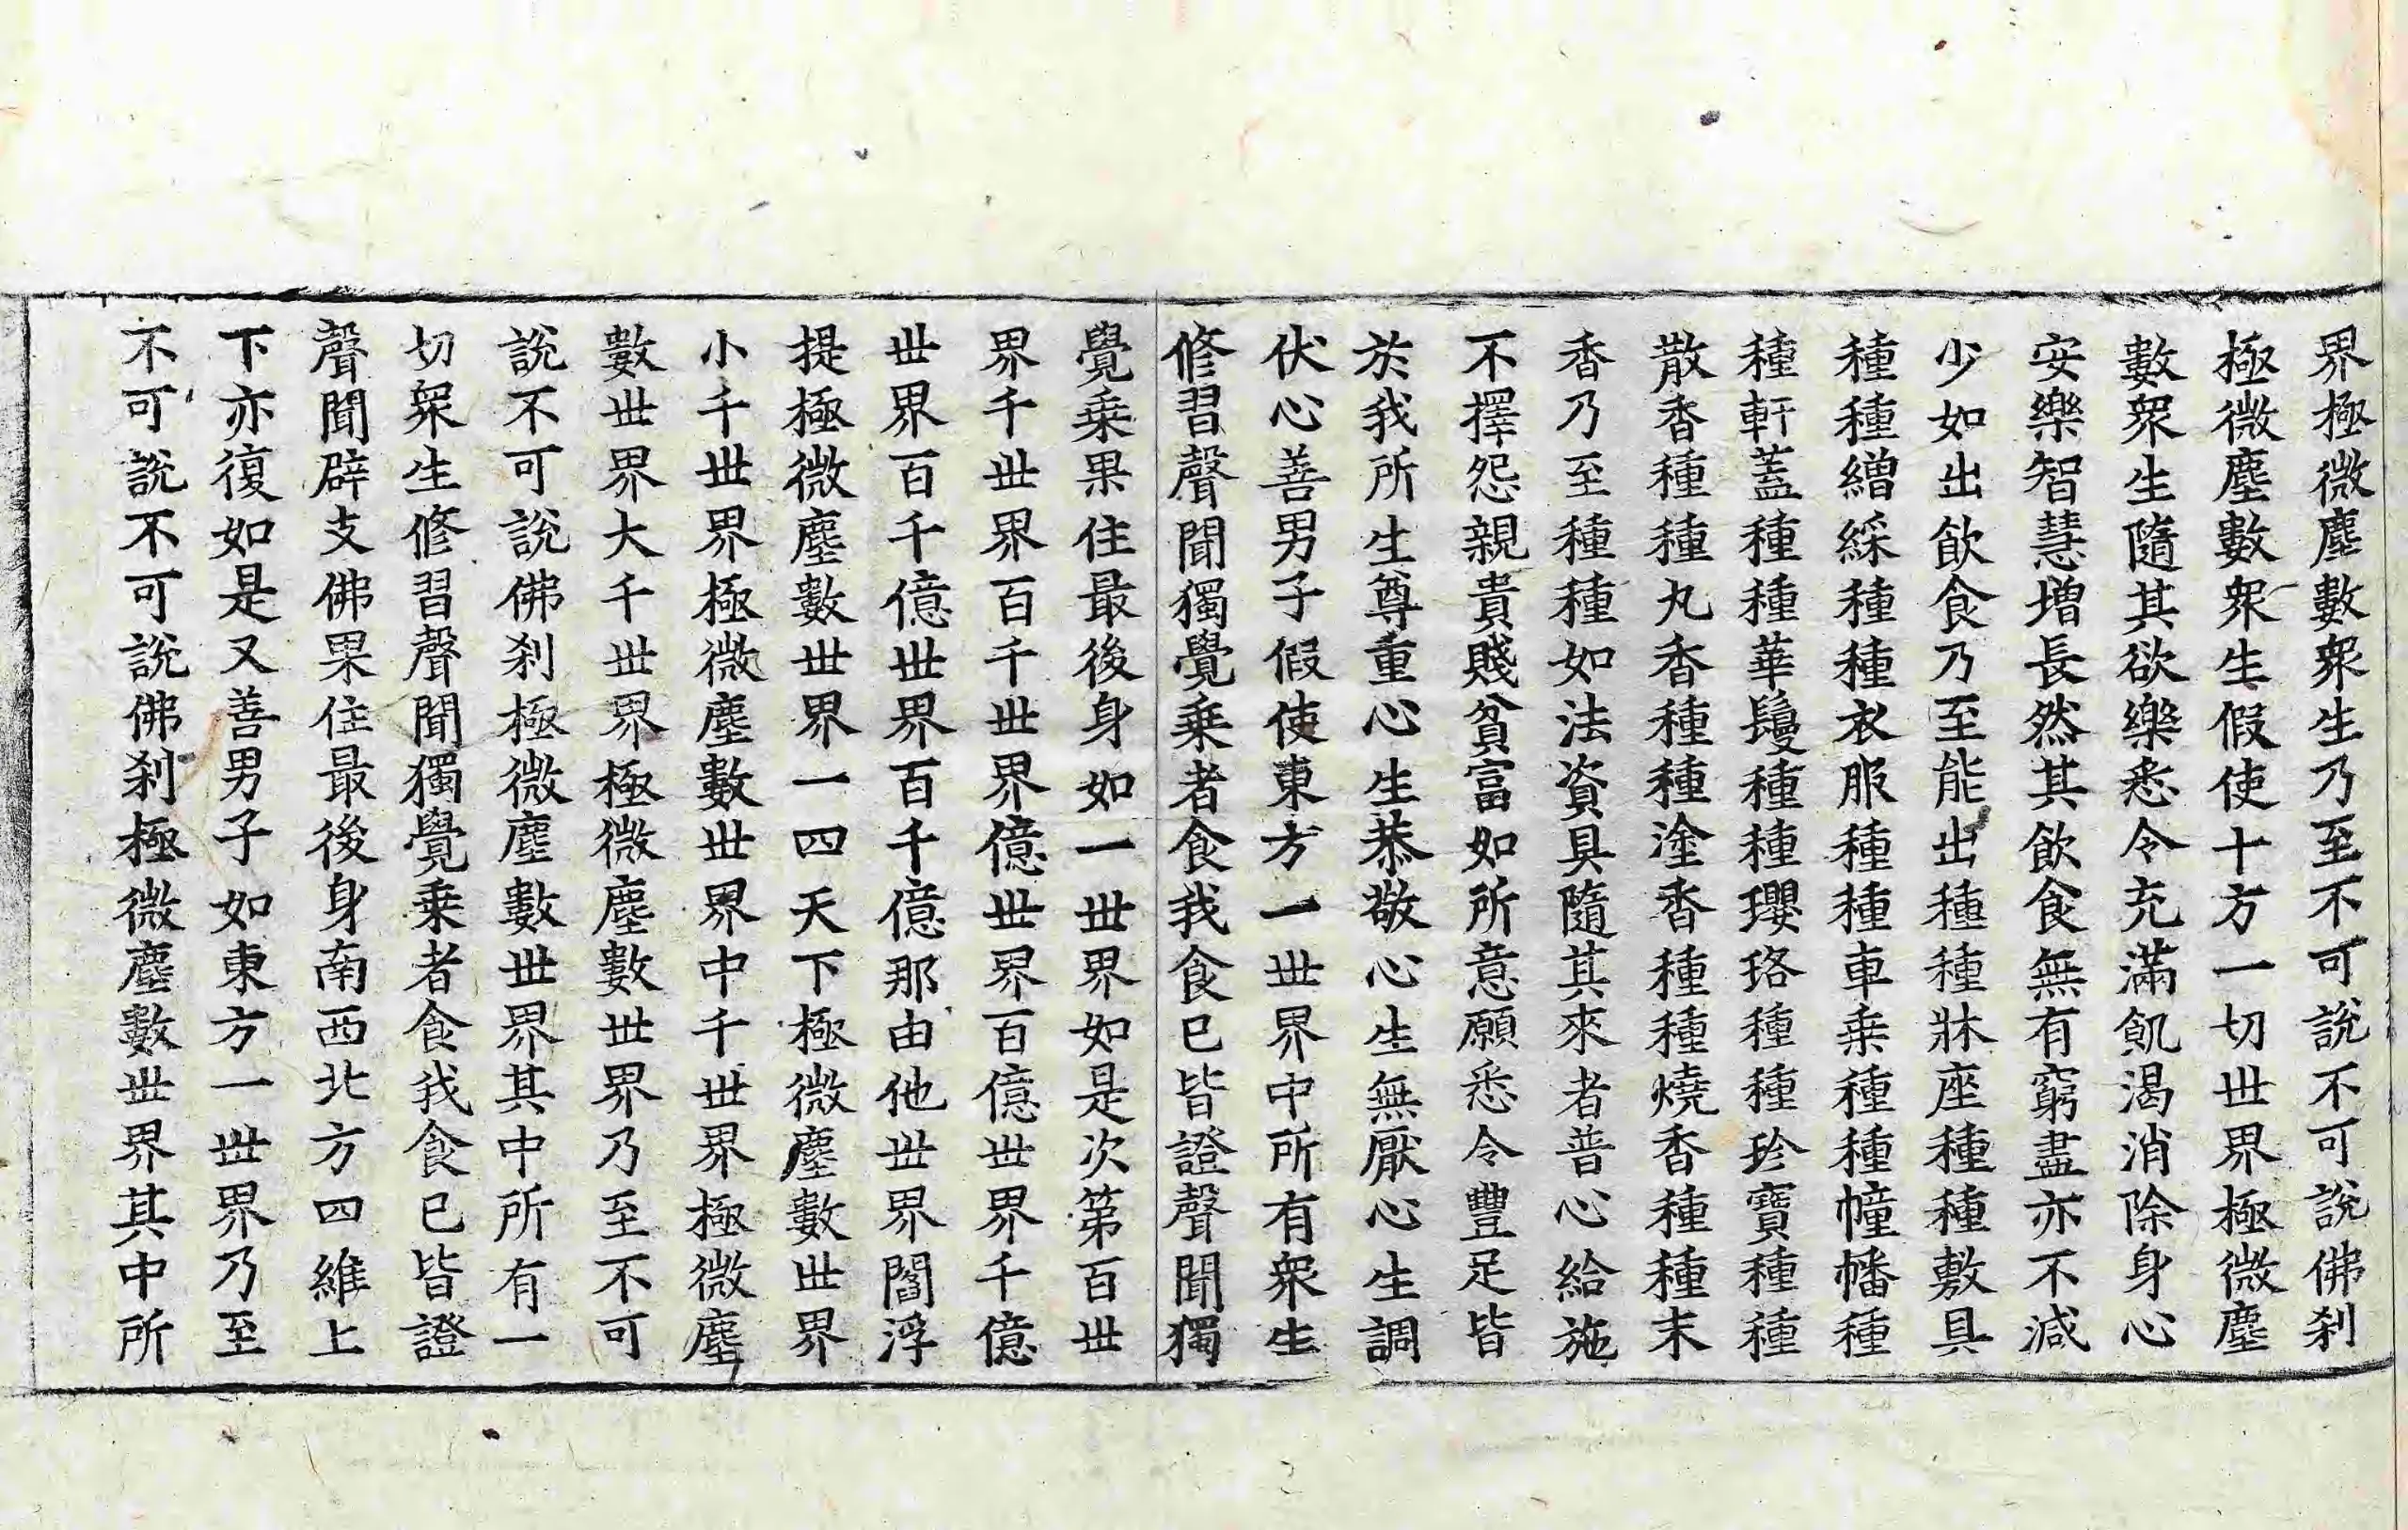 界極微塵數衆生乃至不可說不可說佛刹
極微塵數衆生假使十方一切世界極微塵
數衆生隨其欲樂悉令充滿飢渴消除身心
安樂智慧增長然其飲食無有窮盡亦不減
少如出飲食乃至能出種種牀座種種敷具
種種繒綵種種衣服種種車乗種種幢幡種
種軒蓋種種華鬘種種瓔珞種種珍寶種種
散香種種丸香種種塗香種種燒香種種末
香乃至種種如法資具隨其來者普心給施
不擇怨親貴賤貧富如所意願悉令豐足皆
於我所生尊重心生恭敬心生無厭心生調
伏心善男子假使東方一世界中所有衆生
修習聲聞獨覺乗者食我食已皆證聲聞獨
覺乗果住最後身如一世界如是次第百世
界千世界百千世界億世界百億世界千億
世界百千億世界百千億那由他世界閻浮
提極微塵數世界一四天下極微塵數世界
小千世界極微塵數世界中千世界極微塵
數世界大千世界極微塵數世界乃至不可
說不可說佛刹極微塵數世界其中所有一
切衆生修習聲聞獨覺乗者食我食已皆證
聲聞辟支佛果住最後身南西北方四維上
下亦復如是又善男子如東方一世界乃至
不可說不可說佛刹極微塵數世界其中所